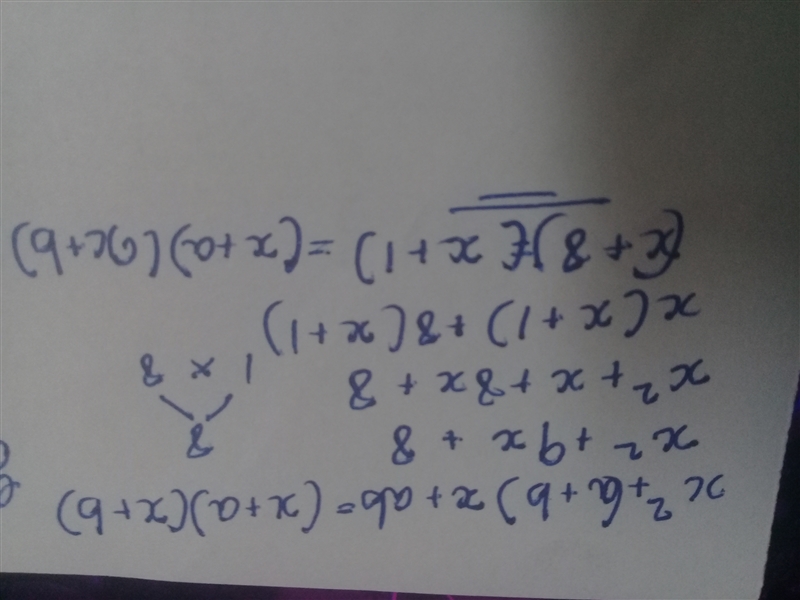 x² + (a + b) x + ab = (x + a)(x + b)
x² + 9x + 8
8
x² + x + 8x + 8
1 x 8
x(x + 1) + 8(x + 1)
(x + 8)(x + 1) = (x + a)(x + b)